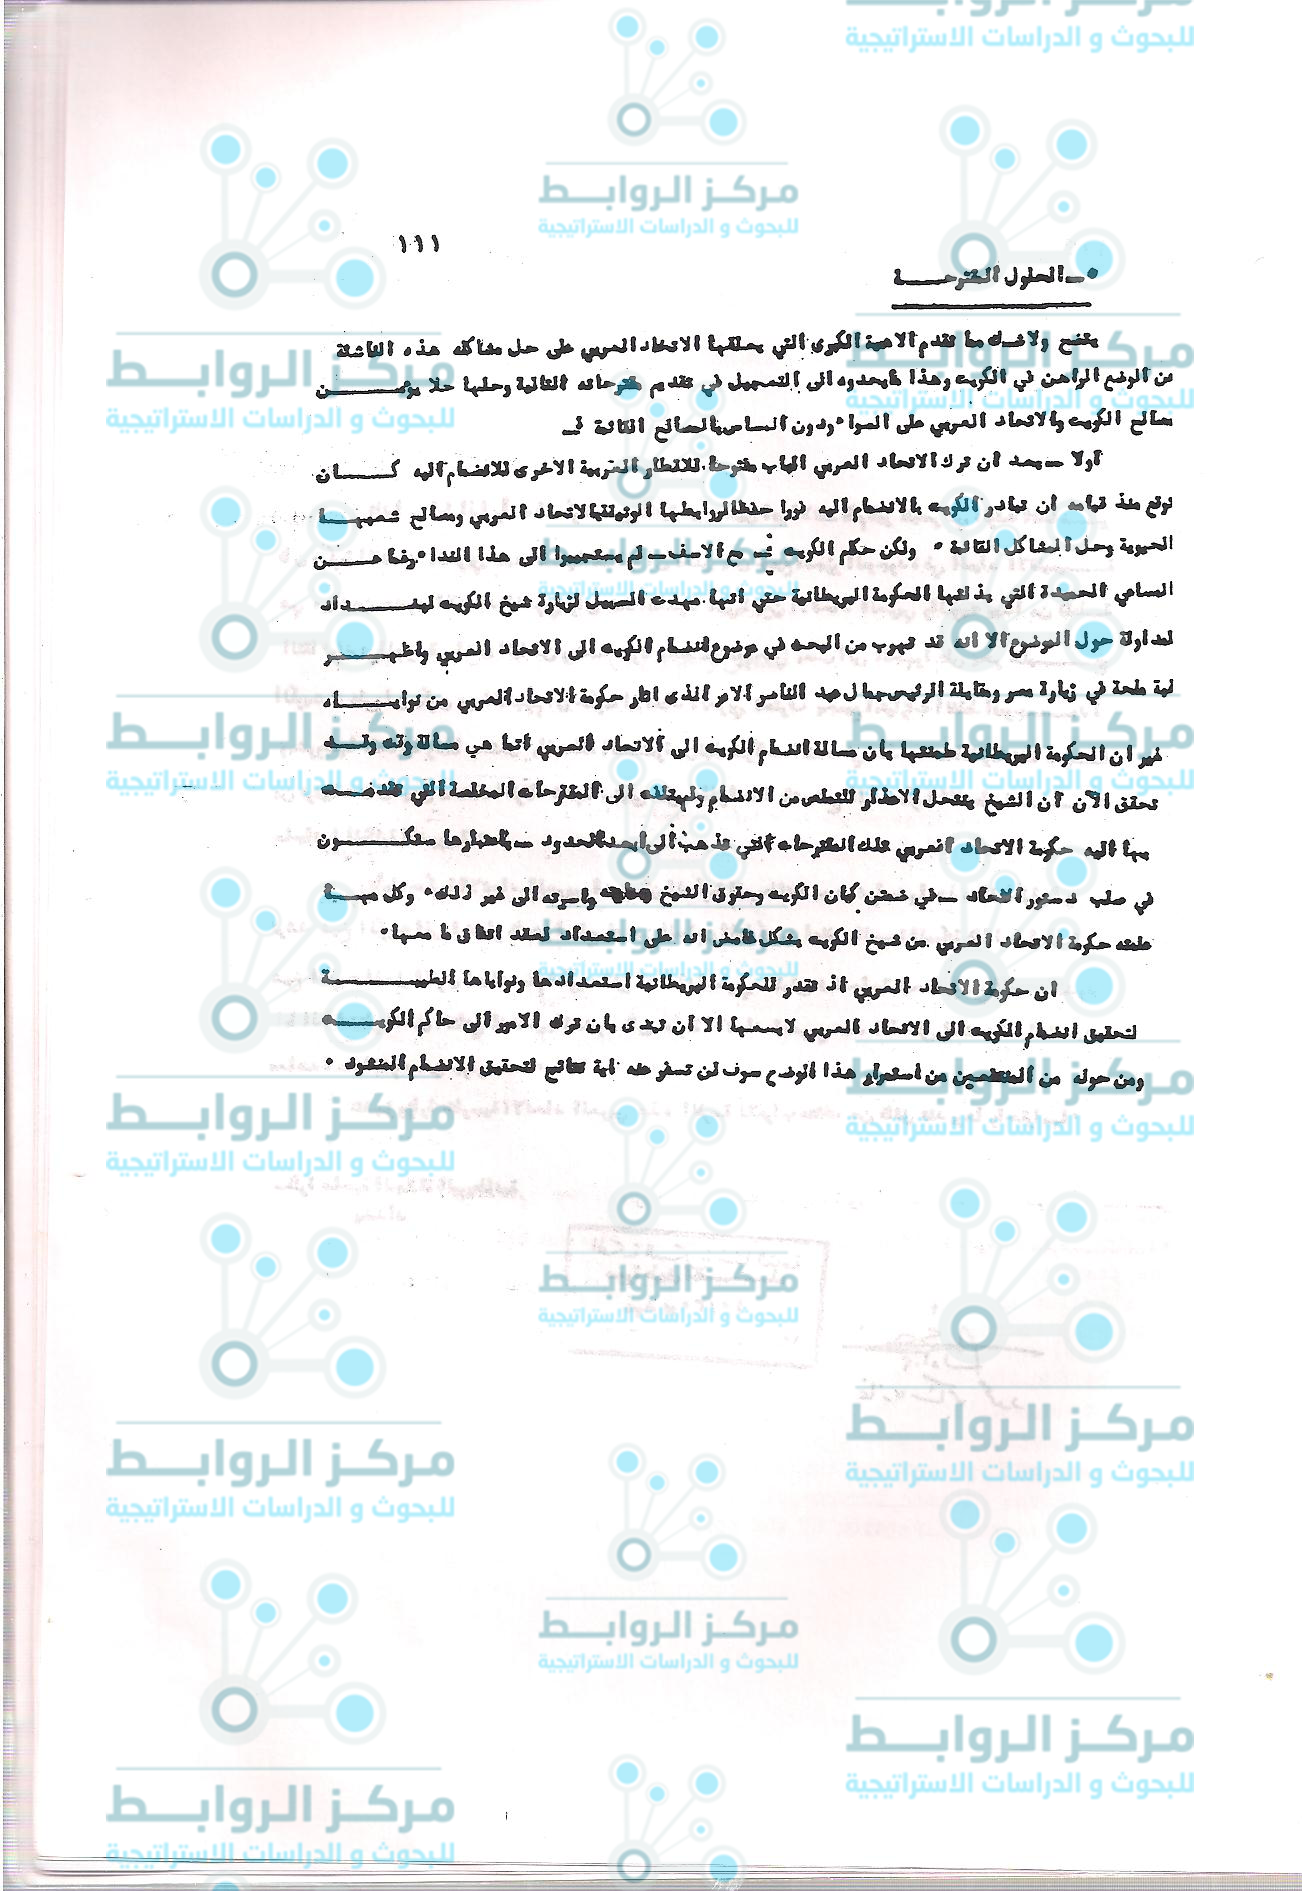 ١١١
٥ ـ الحلول المقترحـــــة
يتضح ولا شـك مما تقدم الاهمية الكبرى التي يعلقها الاتحاد العربي على حل مشاكله هذه الناشئة
عن الوضع الراهن في الكويت وهذا مايحدوه الى التعجيل في تقديم مقترحاته التالية وحلها حلا يؤمــــــــن
مصالح الكويت والاتحاد العربي على السواء ودون المساس بالمصالح القائمة
أولا ـ بعد أن ترك الاتحاد العربي الباب مفتوحا للاقطار العربية الاخرى للانضمام اليه كـــــان
توقع منذ قيامه ان تبادر الكويت بالانضمام اليه فورا حفظا لروابطها الوثيقة بالاتحاد العربي ومصالح شعبهــا
الحيوية وحل المشاكل القائمة ٠ ولكن حكام الكويت ـ مع الاسف ـ لم يستجيبوا الى هذا النداء رغما عـــــن
المساعي الحميدة التي بذلتها الحكومة البريطانية حتى انها مهدت السبيل لزيارة شيخ الكويت لبغـــــداد
لمداولة حول الموضوع الا انه قد تهرب من البحث في موضوع انضمام الكويت الى الاتحاد العربي واظهـــــر
نية ملحة في زيارة مصر ومقابلة الرئيس جمال عبد الناصر الامر الذى اثار حكومة الاتحاد العربي من نوايـــاه
غير ان الحكومة البريطانية طمنتها بأن مسالة انضمام الكويت الى الاتحاد العربي أنما هي مسألة وقت وقـــد
تحقق الآن أن الشيخ ينتحل الاعذار للتملص من الانضمام ولم يلتفت الى المقترحات المخلصة التي تقدمـــت
بها اليه حكومة الاتحاد العربي تلك المقترحات التي تذهب الى ابعد الحدود ـ باعتبارها ستكـــــون
في صلب دستور الاتحاد ـ في ضمان كيان الكويت وحقوق الشيخ واسرته الى غير ذلك٠ وكل مـــا
علمته حكومة الاتحاد العربي من شيخ الكويت بشكل غامض انه على استعداد لعقد اتفاق ما معها٠
ان حكومة الاتحاد العربي اذ تقدر للحكومة البريطانية استعدادها ونواياها الطيبـــــــة
لتحقيق انضمام الكويت الى الاتحاد العربي لا يسعها الا أن تبدى بان ترك الامر الى حاكم الكويـــت
ومن حوله من المنتفعين من استمرار هذا الوضع سوف لن تسفر عنه اية نتائج لتحقيق الانضمام المنشود ٠
مركز الروابط
للبحوث و الدراسات الاستراتيجية